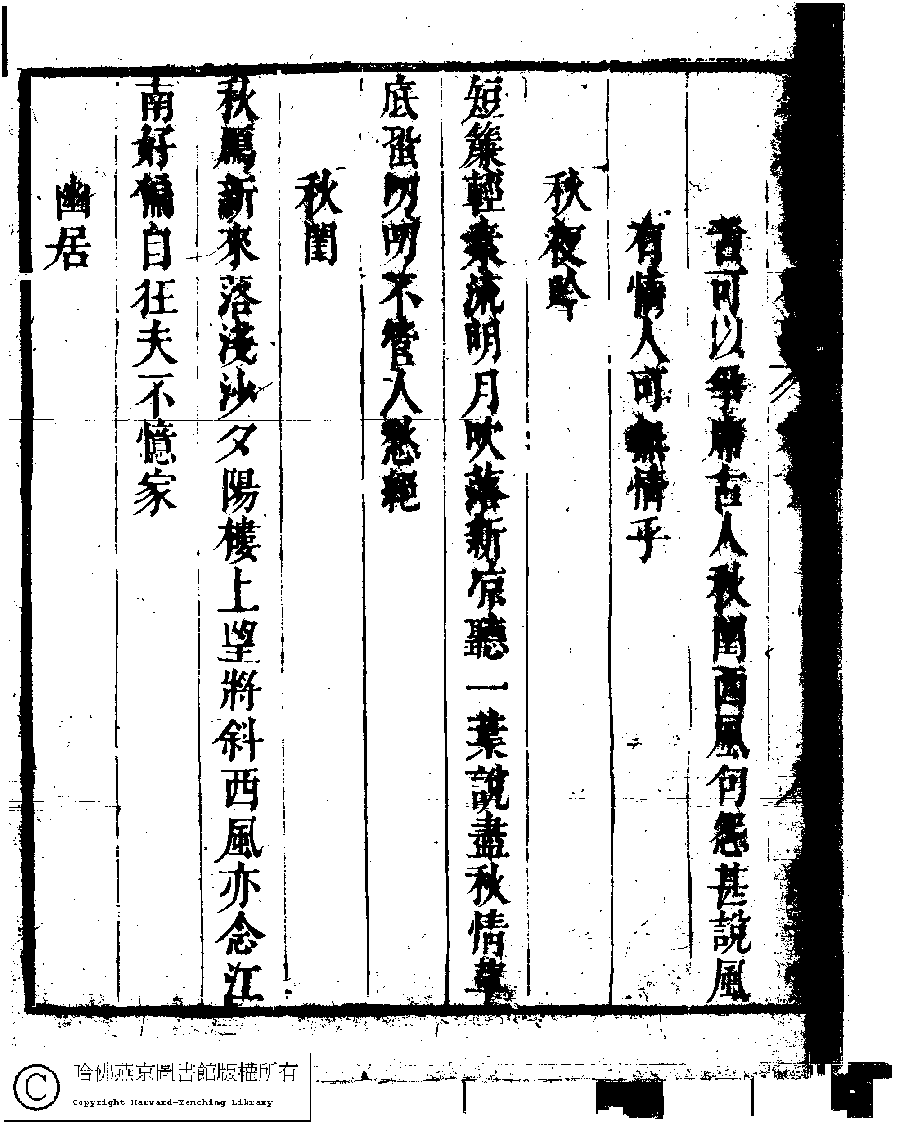 可以　席古人秋閨西風何怨甚說風
有情人可無情乎
秋夜吟
短簾輕　流明月吹落新凉聽一葉說盡秋情草
底蛩　明不管人愁絕
秋閨
秋鴈新來落淺沙夕陽樓上望將斜西風亦念江
南好偏自狂夫不憶家
幽居
哈佛燕京圖書館版權所有
Copyright Harvard-Yenching Library